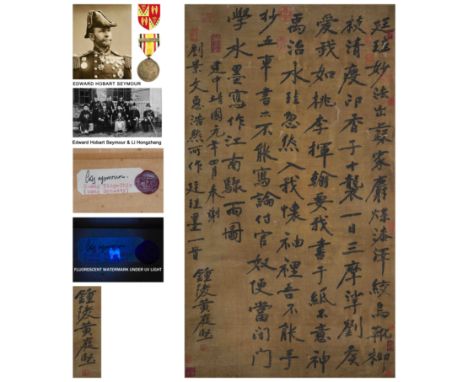 EDWARD HOBART SEYMOUR
Edward Hobart Seymour & Li Hongzhang
FLUORESCENT WATERMARK UNDER UV LIGHT
鍾陵黃庭堅
廷珪妙法出蘇家麝煤漆澤紋烏靴柳
枝清夜印香手十襲一日三摩挲劉侯
愛我如桃李揮贈要我書千紙不意神
禹治水圭忽然入我懷袖裡吾不能手
抄五車書亦不能寫論付官奴便當閉門
學水墨寫作江南驟雨圖
建中靖國元年四月奉謝
劉景文惠浩然所作廷珪墨一首
鍾陵黃庭堅